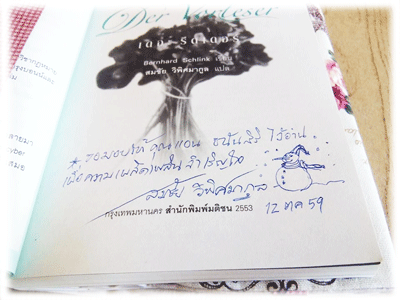 Der Vorleser
เดอะ รีดเดอร์
Bernhard Schlink เขียน
สมชัย วิพิศมากูล แปล
* ขอมอบให้คุณแอน ไว้อ่าน
เพื่อความเพลิดเพลินสำเริงใจ
สมชัย วิพิศมากูล
กรุงเทพมหานคร สำนักพิมพ์มติชน 2553
12 ตค 59